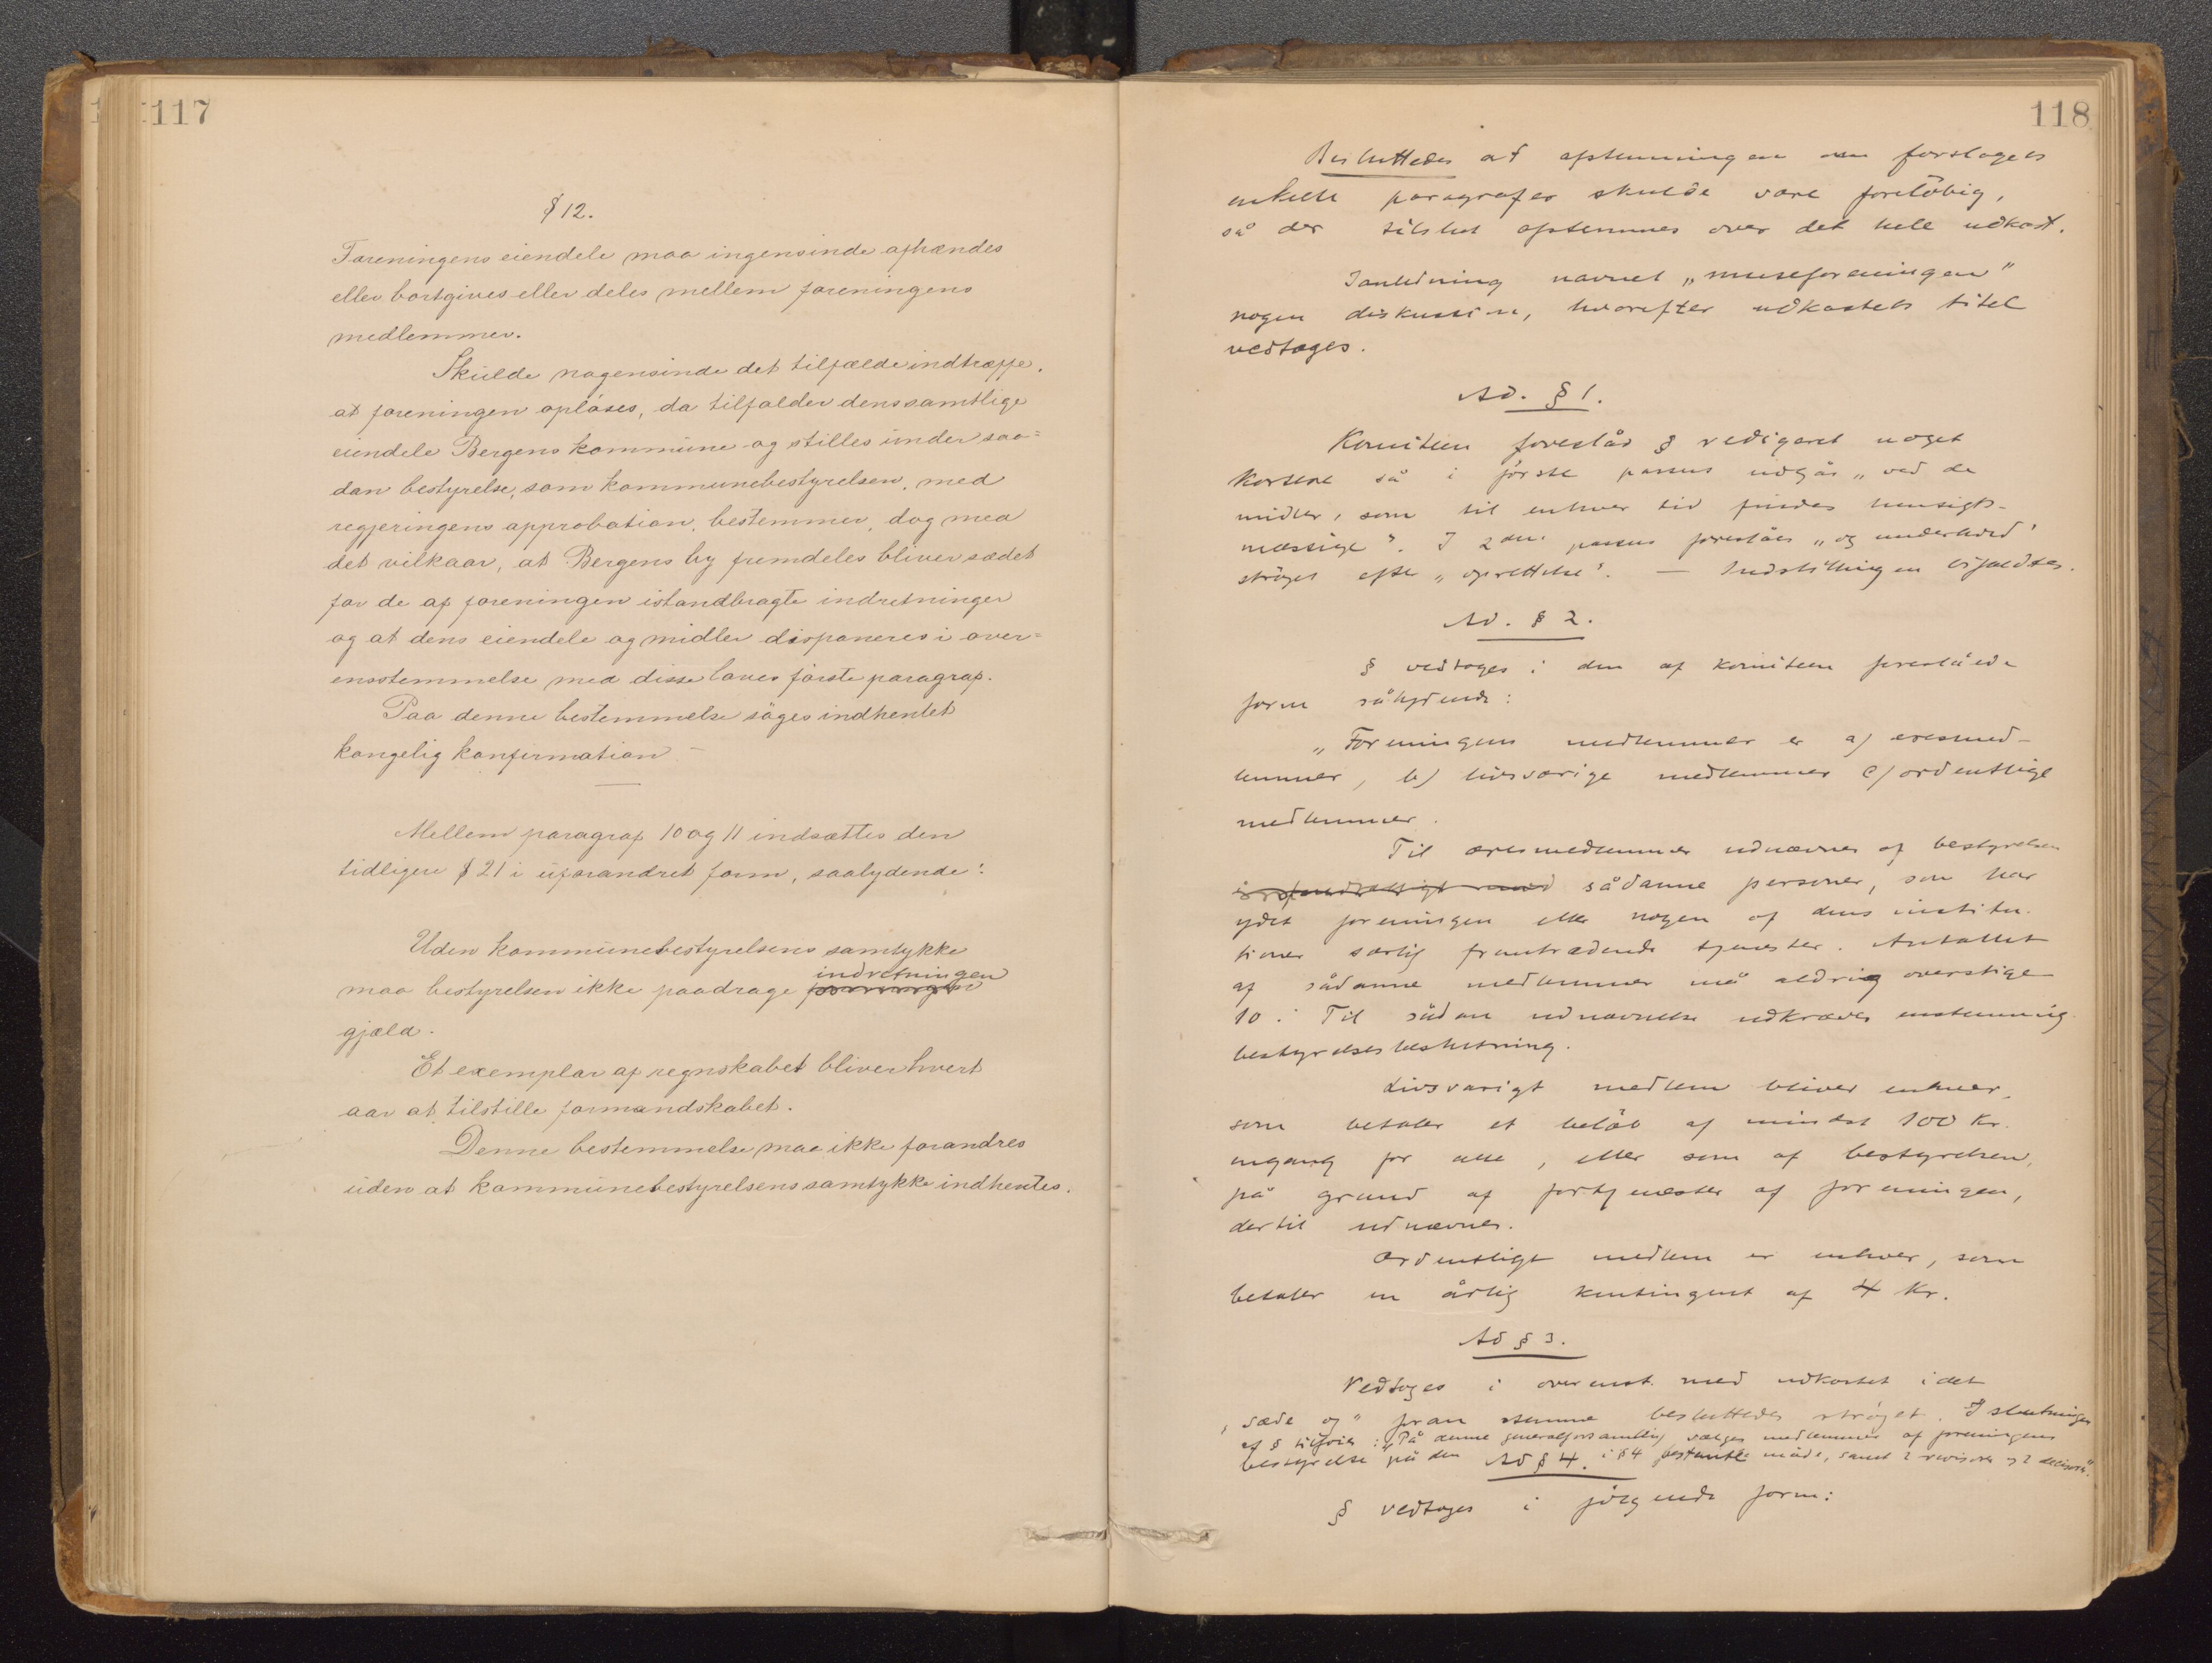 117
§ 12.
Foreningens eiendele maa ingensinde afhændes
eller bortgives eller deles mellem foreningens
medlemmer.
Skulde nogensinde det tilfælde indtræffe,
at foreningen opløses, da tilfalder dens samtlige
eiendele Bergens kommune og stilles under saa=
dan bestyrelse, som kommunebestyrelsen, med
regjeringens approbation, bestemmer, dog med
det vilkaar, at Bergens by fremdeles bliver sædet
for de af foreningen istandbragte indretninger
og at dens eiendele og midler disponeres i over=
ensstemmelse med disse loves første paragraf.
Paa denne bestemmelse søges indhentet
kongelig konfirmation –
Mellem paragraf 10 og 11 indsættes den
tidligere § 21 i uforandret form, saalydende:
Uden kommunebestyrelsens samtykke
indretningen
maa bestyrelsen ikke paadrage foreningen
gjæld.
Et exemplar af regnskabet bliver hvert
aar at tilstille formandskabet.
Denne bestemmelse maa ikke forandres
uden at kommunebestyrelsens samtykke indhentes.
118
Besluttedes at afstemningen om forslagets
enkelte paragrafer skulde være foreløbig,
så der tilslut afstemmes over det hele udkast.
Ianledning navnet „museforeningen"
nogen diskussion, hvorefter udkastets titel
vedtoges.
Ad. § 1.
Komiteen foreslår § redigeret noget
kortere så i første passus udgår „ved de
midler, som til enhver tid findes hensigts-
mæssige". I 2den passus foreslåes „og underhold"
strøget efter „oprettelse". — Indstillingen bifaldtes.
Ad. § 2.
§ vedtoges i den af komiteen foreslåede
form sålydende:
„Foreningens medlemmer er a) eresmed-
lemmer, b) livsvarige medlemmer c) ordentlige
medlemmer.
Til æresmedlemmer udnævnes af bestyrelsen
sådanne personer, som har
ydet foreningen eller nogen af dens institu-
tioner særlig fremtrædende tjenester. Antallet
af sådanne medlemmer må aldrig overstige
10. Til sådan udnævnelse udkræves enstemmig
bestyrelsesbeslutning.
Livsvarigt medlem bliver enhver,
som betaler et beløb af mindst 100 Kr.
engang for alle, eller som af bestyrelsen,
på grund af fortjenester af foreningen,
dertil udnævnes.
Ordentligt medlem er enhver, som
betaler en årlig kontingent af 4 Kr.
Ad § 3.
Vedtoges i overenst. med udkastet idet
„sæde og" foran stemme besluttedes strøget. I slutningen
af § tilføies: „På denne generalforsamling vælges medlemmer af foreningens
bestyrelse på den i § 4 bestemte måde, samt 2 revisorer og 2 decisorer".
Ad § 4.
§ vedtoges i følgende form: